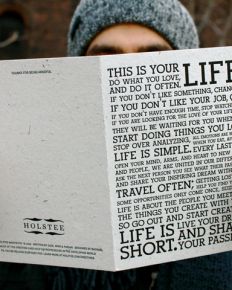 THANKS FOR BEING MINDFUL.
HOLSTEE
THIS IS YOUR LIFE
DO WHAT YOU LOVE,
AND DO IT OFTEN.
IF YOU DON'T LIKE SOMETHING, CHANG
IF YOU DON'T LIKE YOUR JOB, Q
IF YOU DON'T HAVE ENOUGH TIME, STOP WATCH
IF YOU ARE LOOKING FOR THE LOVE OF YOUR LIFE
THEY WILL BE WAITING FOR YOU WHEN
START DOING THINGS YOU L
STOP OVER ANALYZING,
LIFE IS SIMPLE.
EVERY LAST
OPEN YOUR MIND, ARMS, AND HEART TO NEW
AND PEOPLE, WE ARE UNITED IN OUR DIFFER
ASK THE NEXT PERSON YOU SEE WHAT
AND SHARE YOUR INSPIRING DREAM WITH
TRAVEL OFTEN;
GETTING LOS
HELP YOU FIND
SOME OPPORTUNITIES ONLY COME ONCE, SEIZE
LIFE IS ABOUT THE PEOPLE YOU MEET
THE THINGS YOU CREATE WIT
SO GO OUT AND START CREAT
LIFE IS
SHORT.
AND SHAR
YOUR PASSI